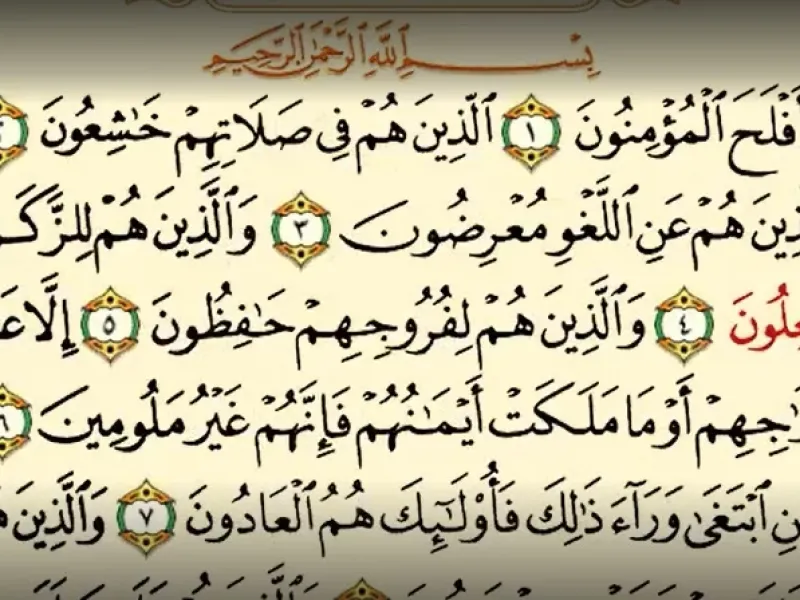 بِسْمِ ٱللَّهِ ٱلرَّحْمَٰنِ ٱلرَّحِيمِ
أَفْلَحَ ٱلْمُؤْمِنُونَ ١ ٱلَّذِينَ هُمْ فِى صَلَاتِهِمْ خَٰشِعُونَ ٢
هُمْ عَنِ ٱللَّغْوِ مُعْرِضُونَ ٣ وَٱلَّذِينَ هُمْ
٤ وَٱلَّذِينَ هُمْ لِفُرُوجِهِمْ حَٰفِظُونَ ٥ إِلَّا
أَوْ مَا مَلَكَتْ أَيْمَٰنُهُمْ فَإِنَّهُمْ غَيْرُ مَلُومِينَ ٦
ٱبْتَغَىٰ وَرَآءَ ذَٰلِكَ فَأُو۟لَٰٓئِكَ هُمُ ٱلْعَادُونَ ٧ وَٱلَّذِينَ